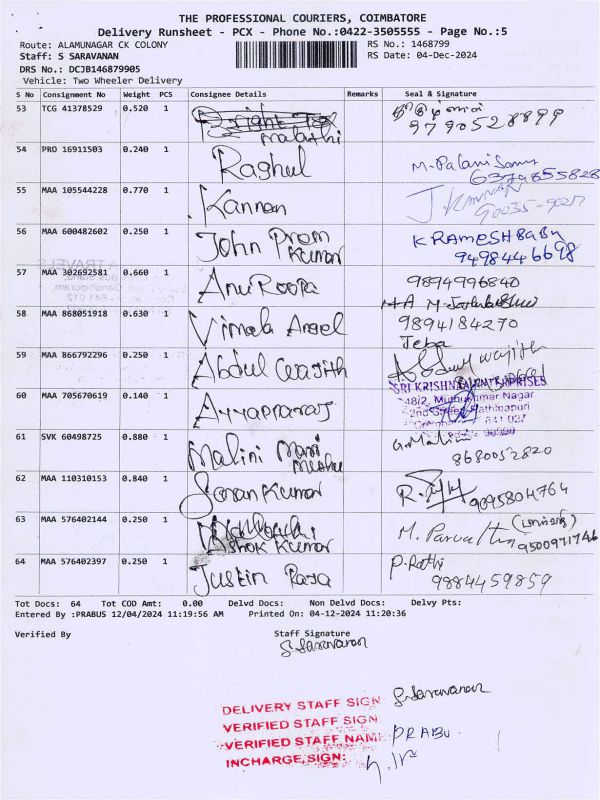 THE PROFESSIONAL COURIERS, COIMBATORE
Delivery Runsheet - PCX - Phone No.:0422-3505555 - Page No.:5
Route: ALAMUNAGAR CK COLONY
RS No.: 1468799
Staff: S SARAVANAN
RS Date: 04-Dec-2024
DRS No.: DCJB146879905
Vehicle: Two Wheeler Delivery
S No Consignment No Weight PCS Consignee Details Remarks Seal & Signature
53 TCG 41378529 0.520 1 Malathi 9790528899
54 PRO 16911503 0.240 1 Raghul M. Palani Samy
6379855828
55 MAA 105544228 0.770 1 Kannan J. KANNAN
90035-
56 MAA 600482602 0.250 1 John Prem Kumar K RAMESH BABU
9498446698
57 MAA 302692581 0.660 1 Anu Roopa 9894996840
58 MAA 868051918 0.630 1 Vimala Angel 9894184270
Jeba
59 MAA 866792296 0.250 1 Abdul Wajith Abdul Wajith
60 MAA 705670619 0.140 1 Ayyappraraj SRI KRISHNA ENTERPRISES
48/2, Muthukumar Nagar
2nd Street,
61 SVK 60498725 0.880 1 Malini Mari Muthu G. Malini
8680052820
62 MAA 110310153 0.840 1 Saran Kumar R. 9095804764
63 MAA 576402144 0.250 1 Ashok Kumar M. Parvatha
9500971746
64 MAA 576402397 0.250 1 Justin Raja P. Rathi
9984459859
Tot Docs: 64 Tot COD Amt: 0.00 Delvd Docs: Non Delvd Docs: Delvy Pts:
Entered By :PRABUS 12/04/2024 11:19:56 AM Printed On: 04-12-2024 11:20:36
Verified By Staff Signature
S. Saravanan
DELIVERY STAFF SIGN: S. Saravanan
VERIFIED STAFF SIGN:
VERIFIED STAFF NAME: PRABU
INCHARGE SIGN: